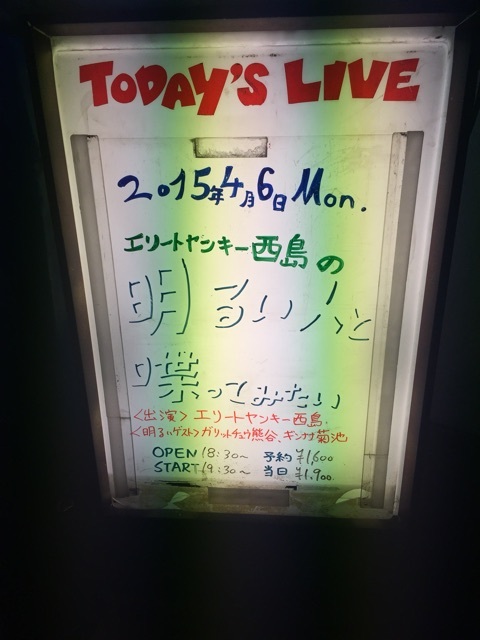 TODAY'S LIVE
2015年4月6日 Mon.
エリートヤンキー西島の
明るい人と
喋ってみたい
〈出演〉エリートヤンキー西島.
〈明るいゲスト〉ガリットチュウ熊谷、キンボシ菊池
OPEN 18:30〜 予約 ¥1,600
START 19:30〜 当日 ¥1,900